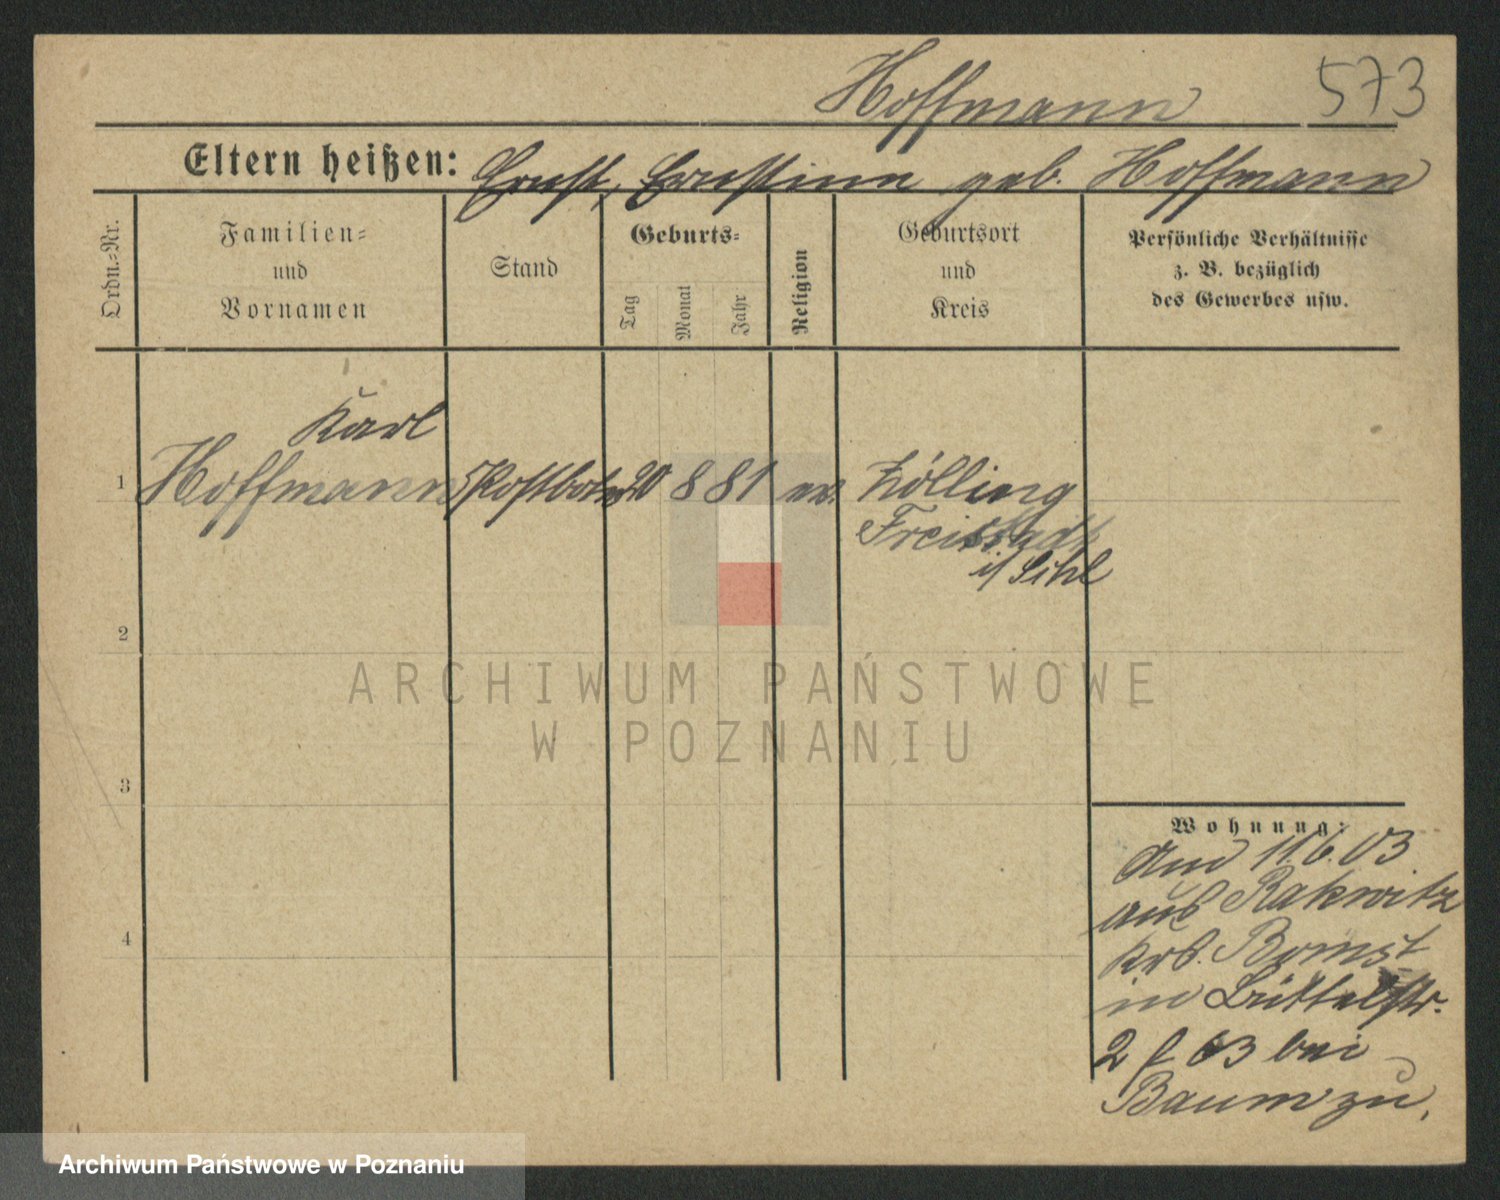 Hoffmann 573
Eltern heißen: Ernst, Ernstine geb. Hoffmann
Ordn.-Nr.
Familien-
und
Vornamen
Stand
Geburts-
Tag
Monat
Jahr
Religion
Geburtsort
und
Kreis
Persönliche Verhältnisse
z. B. bezüglich
des Gewerbes usw.
Karl
1 Hoffmann Postbote 20 8 81 ev. Zölling
Freistadt
i/ Schl
2
3
4
Wohnung:
Am 11.6.03
aus Rakwitz
Krs. Bomst
in
2 63 bei
Baum zu.
ARCHIWUM PAŃSTWOWE
W POZNANIU
Archiwum Państwowe w Poznaniu